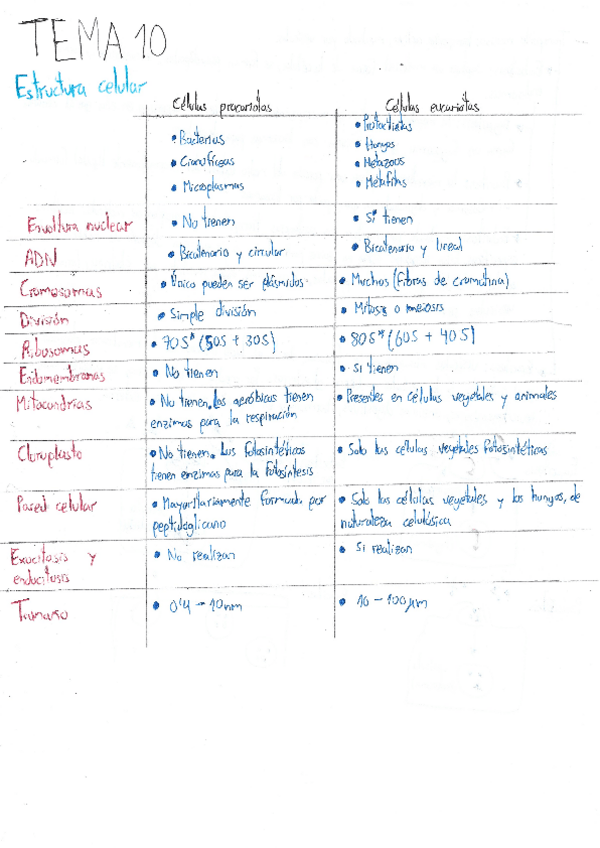 TEMA 10
Estructura celular
Células procariotas
Células eucariotas
• Bacterias
• Cianofíceas
• Micoplasmas
• Protoctistas
• Hongos
• Metazoos
• Metafitas
Envoltura nuclear
• No tienen
• Si tienen
ADN
• Bicatenario y circular
• Bicatenario y lineal
Cromosomas
• Único pueden ser plásmidos
• Muchos (Fibras de cromatina)
División
• Simple división
• Mitosis o meiosis
Ribosomas
• 70S* (50S + 30S)
• 80S* (60S + 40S)
Endomembranas
• No tienen
• Si tienen
Mitocondrias
• No tienen. Los aeróbicos tienen
enzimas para la respiración
• Presentes en células vegetales y animales
Cloroplasto
• No tienen. Los fotosintéticos
tienen enzimas para la fotosíntesis
• Solo las células vegetales fotosintéticas
Pared celular
• Mayoritariamente formada por
peptidoglicano
• Solo las células vegetales y los hongos, de
naturaleza celulósica
Exocitosis y
endocitosis
• No realizan
• Si realizan
Tamaño
• 0'4 - 10 nm
• 10 - 100 μm